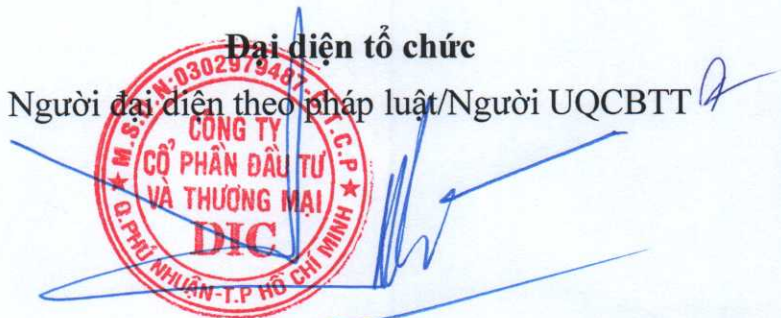 Đại diện tổ chức
Người đại diện theo pháp luật/Người UQCBTT
M.S.D.N:0302979487-C.T.C.P
CÔNG TY
CỔ PHẦN ĐẦU TƯ
VÀ THƯƠNG MẠI
DIC
Q.PHÚ NHUẬN-T.P HỒ CHÍ MINH